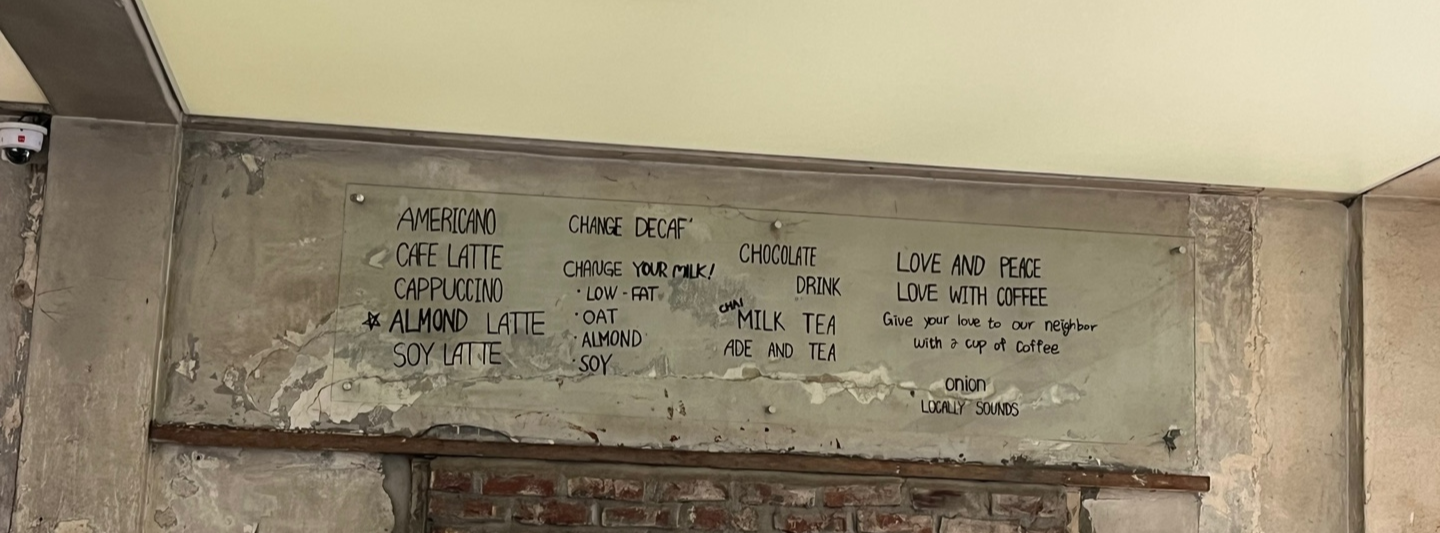 AMERICANO
CAFE LATTE
CAPPUCCINO
☆ ALMOND LATTE
SOY LATTE
CHANGE DECAF'
CHANGE YOUR MILK!
· LOW-FAT
· OAT
· ALMOND
· SOY
CHOCOLATE
DRINK
CHAI
MILK TEA
ADE AND TEA
LOVE AND PEACE
LOVE WITH COFFEE
Give your love to our neighbor
with a cup of coffee
onion
LOCALLY SOUNDS